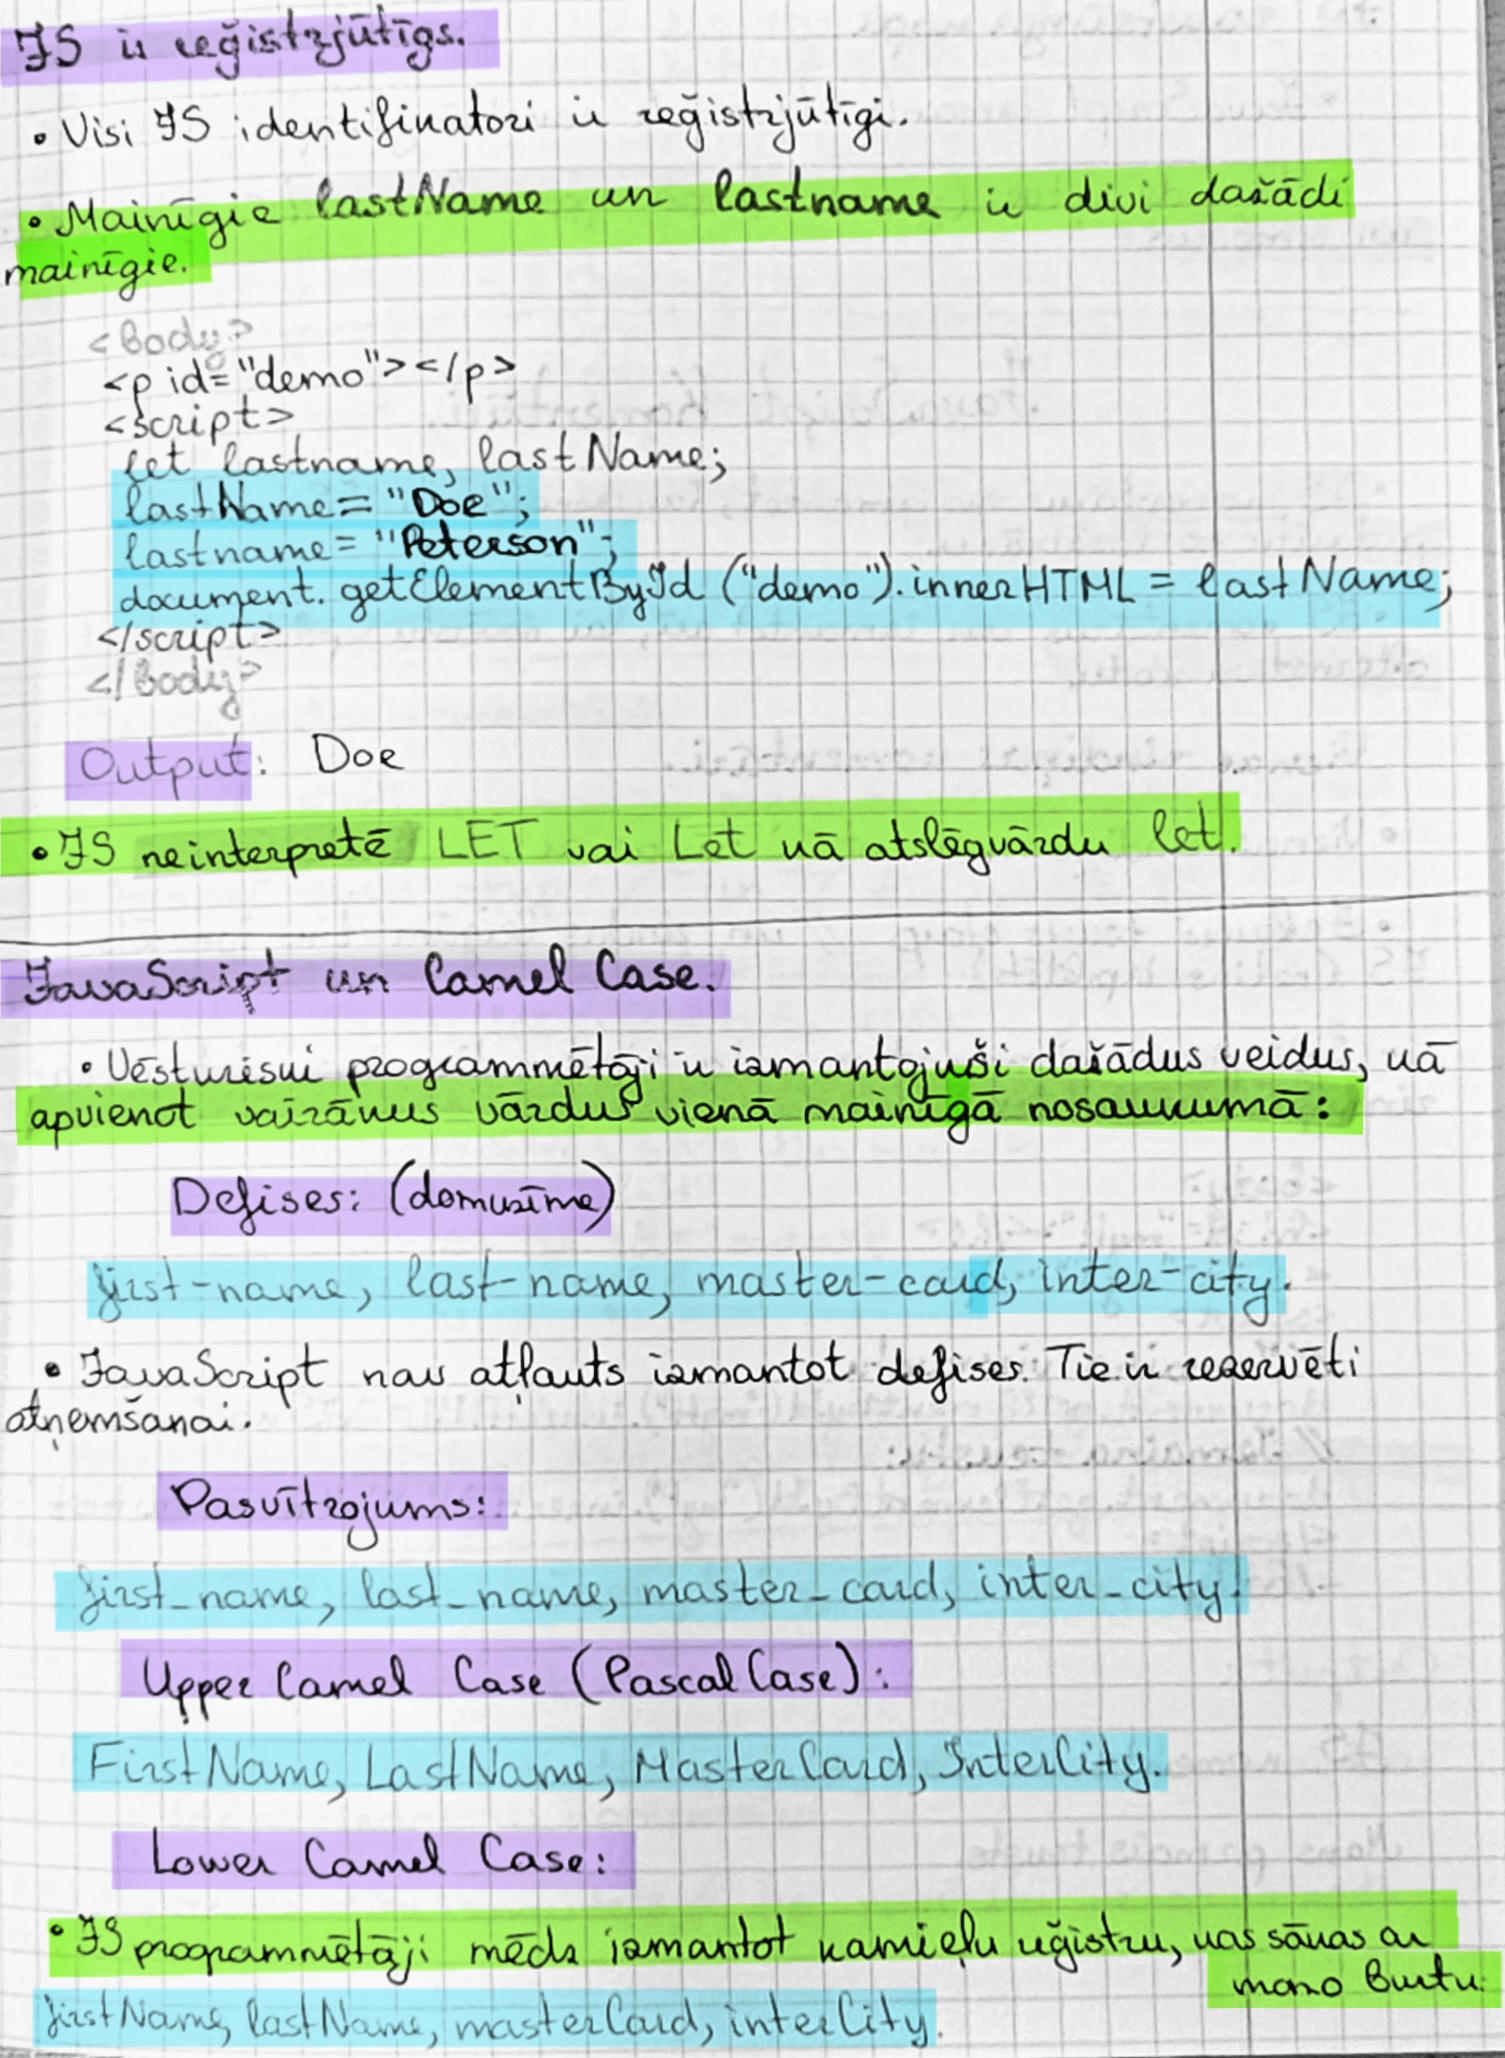 JS ir reģistrjūtīgs.
• Visi JS identifikatori ir reģistrjūtīgi.
• Mainīgie lastName un lastname ir divi dažādi
mainīgie.
<body>
<p id="demo"></p>
<script>
let lastname, lastName;
lastName = "Doe";
lastname = "Peterson";
document.getElementById ("demo").innerHTML = lastName;
</script>
</body>
Output: Doe
• JS neinterpretē LET vai Let kā atslēgvārdu let.
JavaScript un Camel Case.
• Vēsturiski programmētāji ir izmantojuši dažādus veidus, kā
apvienot vairākus vārdus vienā mainīgā nosaukumā:
Defises: (domuzīme)
first-name, last-name, master-card, inter-city.
• JavaScript nav atļauts izmantot defises. Tie ir rezervēti
atņemšanai.
Pasvītrojums:
first_name, last_name, master_card, inter_city.
Upper Camel Case (Pascal Case):
FirstName, LastName, MasterCard, InterCity.
Lower Camel Case:
• JS programmētāji mēdz izmantot kamieļu reģistru, kas sākas ar
mazo burtu.
firstName, lastName, masterCard, interCity.